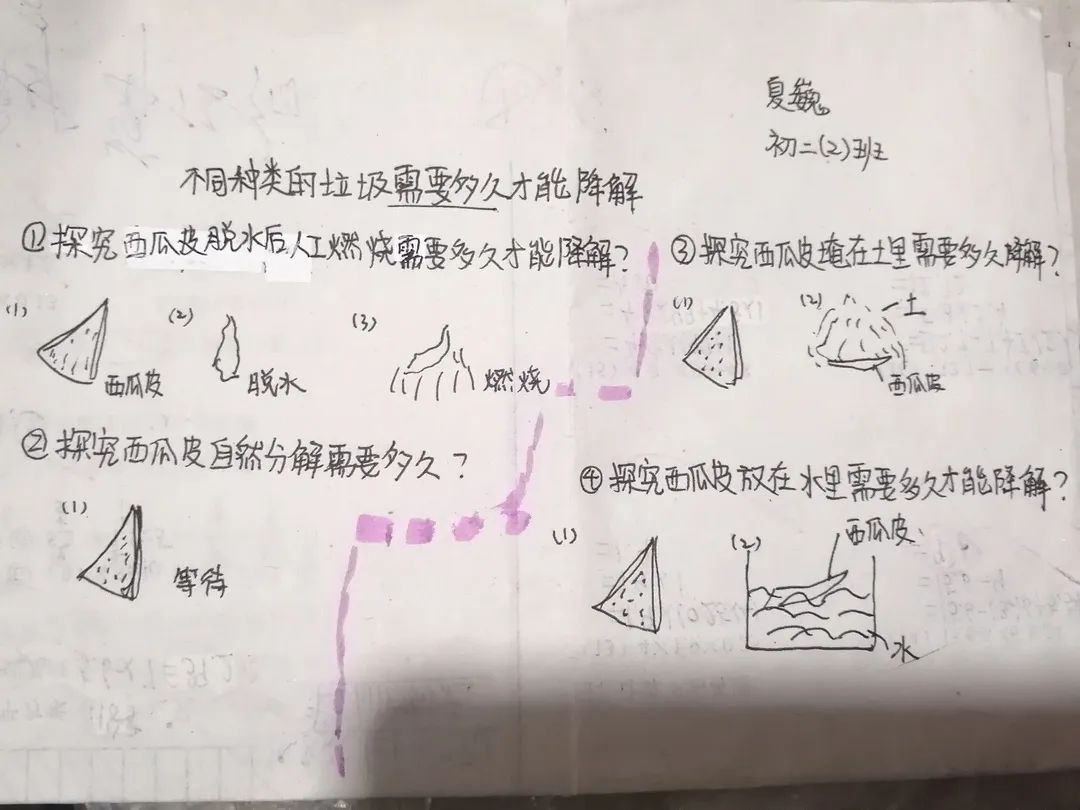 夏巍
初二(2)班
不同种类的垃圾需要多久才能降解
①探究西瓜皮脱水后人工燃烧需要多久才能降解?
(1)
西瓜皮
(2)
脱水
(3)
燃烧
②探究西瓜皮自然分解需要多久?
(1)
等待
③探究西瓜皮掩在土里需要多久降解?
(1)
(2)
土
西瓜皮
④探究西瓜皮放在水里需要多久才能降解?
(1)
(2)
西瓜皮
水